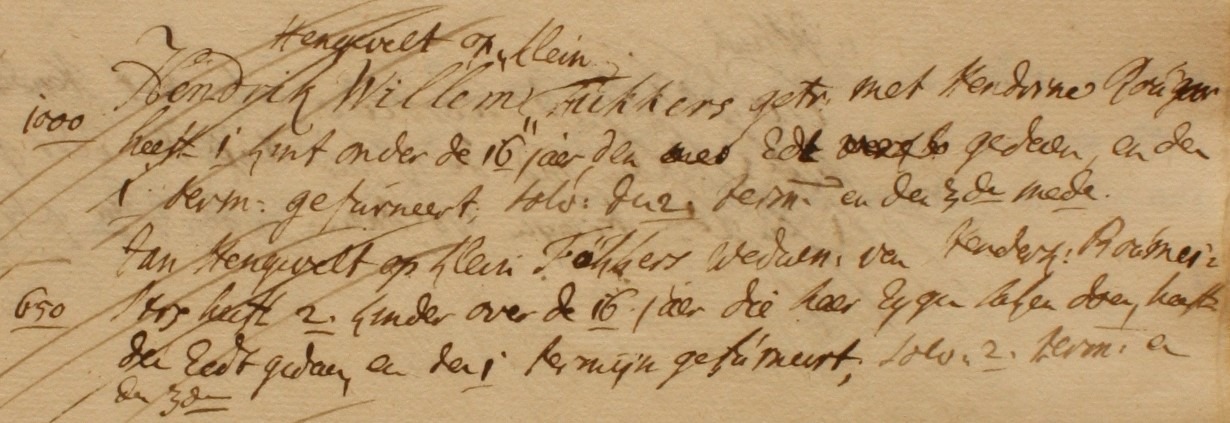 Hengevelt op klein
Hendrik Willem Fukkers getr. met Hendrine
1000
heeft 1 kint onder de 16 jaer, den Edt gedaen, en den
1 term: gefurneert, solv: du 2. term. en den 3de mede.
Jan Hengevelt op klein Fökkers Weduw: van Hendersk:
650
heeft 2. kinder over de 16 jaer die haer Eygen saken doen, heeft
den Eedt gedaen, en den 1 termijn gefurneert, solv. 2. term: en
den 3den